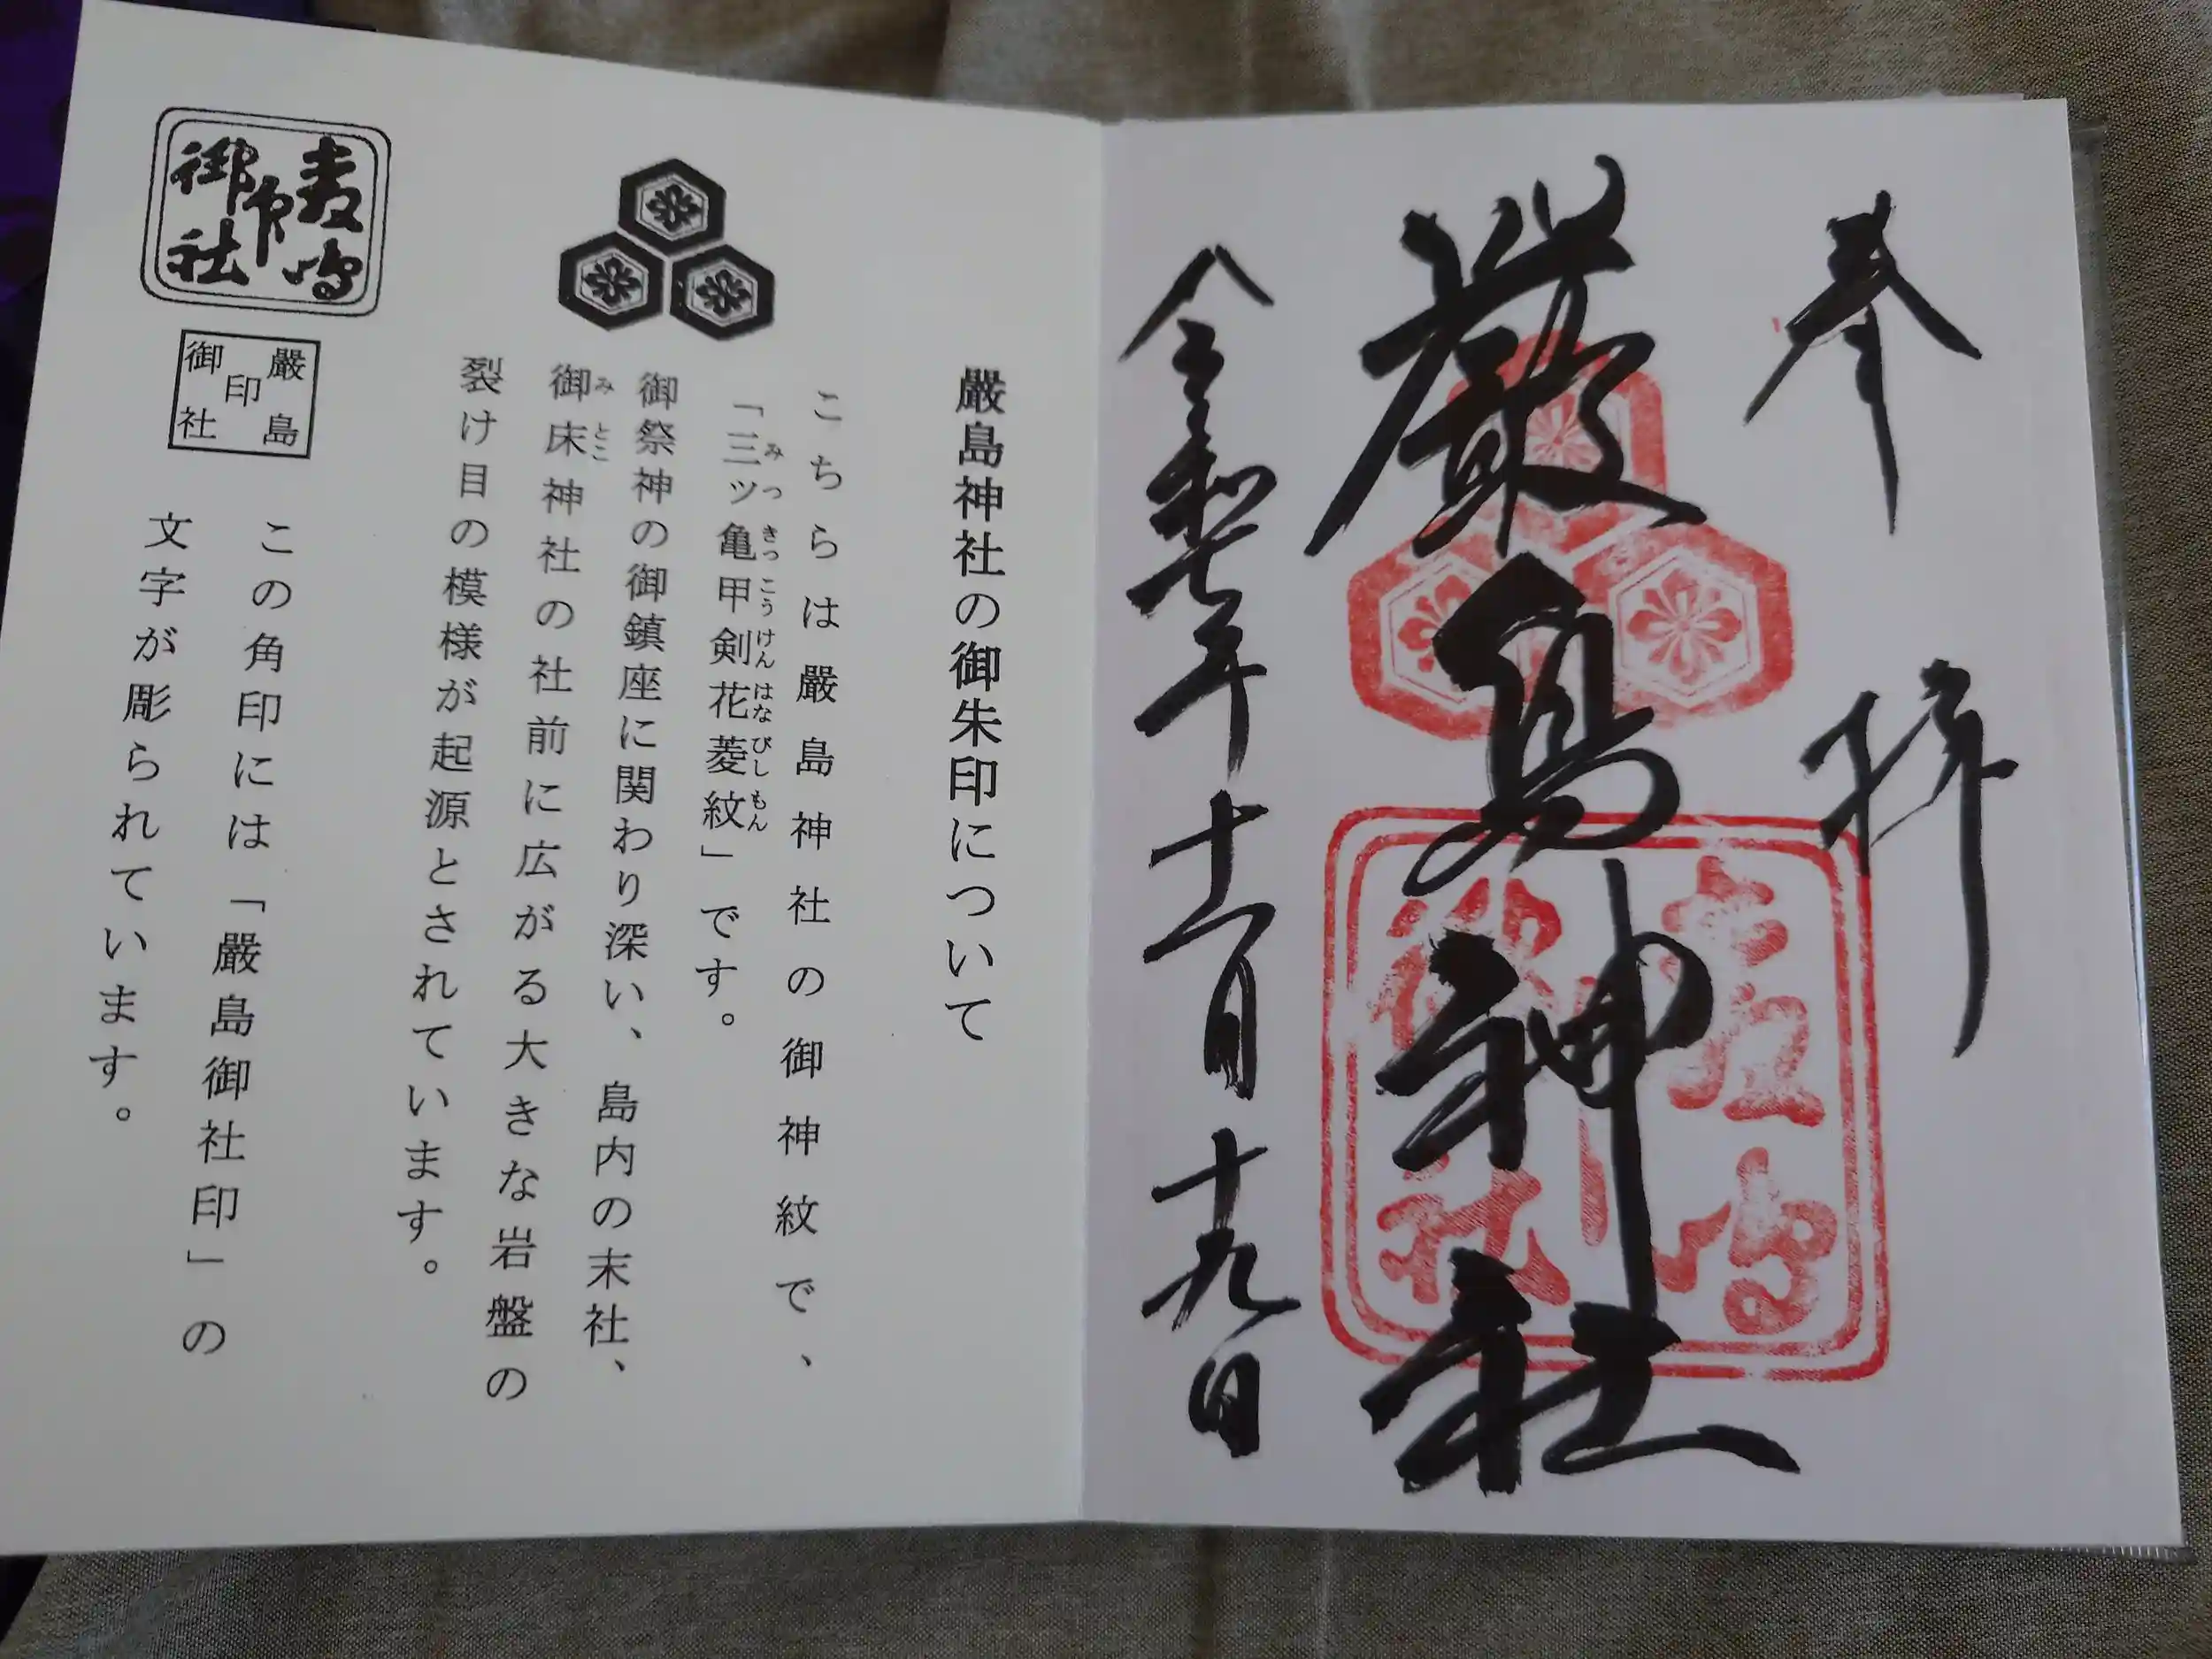 奉拝
嚴島神社
令和七年十一月十九日
嚴島神社の御朱印について
こちらは嚴島神社の御神紋で、
「三ツ亀甲剣花菱紋」です。
みつきっこうけんはなびしもん
御祭神の御鎮座に関わり深い、島内の末社、
御床神社の社前に広がる大きな岩盤の
みとこ
裂け目の模様が起源とされています。
嚴島
印
御社
嚴島
印
御社
この角印には「嚴島御社印」の
文字が彫られています。